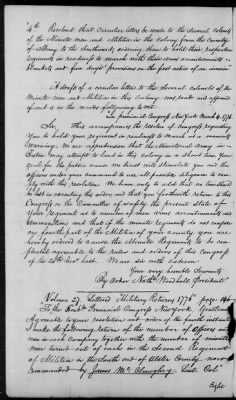 "4th Resolved that Circular letters be wrote to the several colonels
of the Minute men and Militia in the Colony from the County
of Albany to the Southward ordering them to hold their respective
regiments in readiness to march with their arms accoutrements
blankets and five days provisions on the first notice of an invasion"
A draft of a circular letter to the several colonels of the
Minute men and Militia in this Colony was read and approved
of and is in the words following to wit:
In provincial Congress New York March 4. 1776
Sir, This accompanies the resolve of congress requesting
You to hold your regiment in readiness to march at a minute
Warning. We are apprehensive that the Ministerial Army in
Boston may attempt to land in this Colony in a short time. Your
zeal for the public cause we trust will stimulate you and the
officers under your command to use all possible diligence to com-
ply with this resolution. We have only to add that no time should
be lost in executing this order and that you forthwith return to this
Congress or the Committee of safety the present state of
Your regiment as to number of men arms accoutrements and
ammunition and that if the minute regiments do not compose
one fourth part of the Militia of your county you are
hereby ordered to cause the Minute Regiments to be com-
pleated agreeable to the rules and orders of this Congress
of the 20th Decr last. We are sir with esteem
Your very humble Servants
By order Nathl Woodhull President
Volume 27. Letters Military Returns 1776 page 146
To the Honble Provincial Congress New York. Gentlemen
Agreeable to your resolution and order of the fourth instant
I make the following return of the number of Officers and
men in each Company together with the number of minute
men turned out of each in the Second Regiment
of Militia in the South end of Ulster County now
commanded by James McClaughry Lieut Coll
Eight